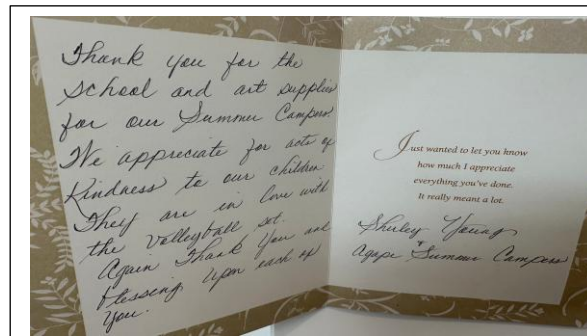 Thank you for the
School and art supplies
for our Summer Campers.
We appreciate for acts of
Kindness to our children
They are in love with
the Volleyball set.
Again Thank You and
blessing upon each of
you.
Just wanted to let you know
how much I appreciate
everything you've done.
It really meant a lot.
Shirley Young
Agape Summer Campers